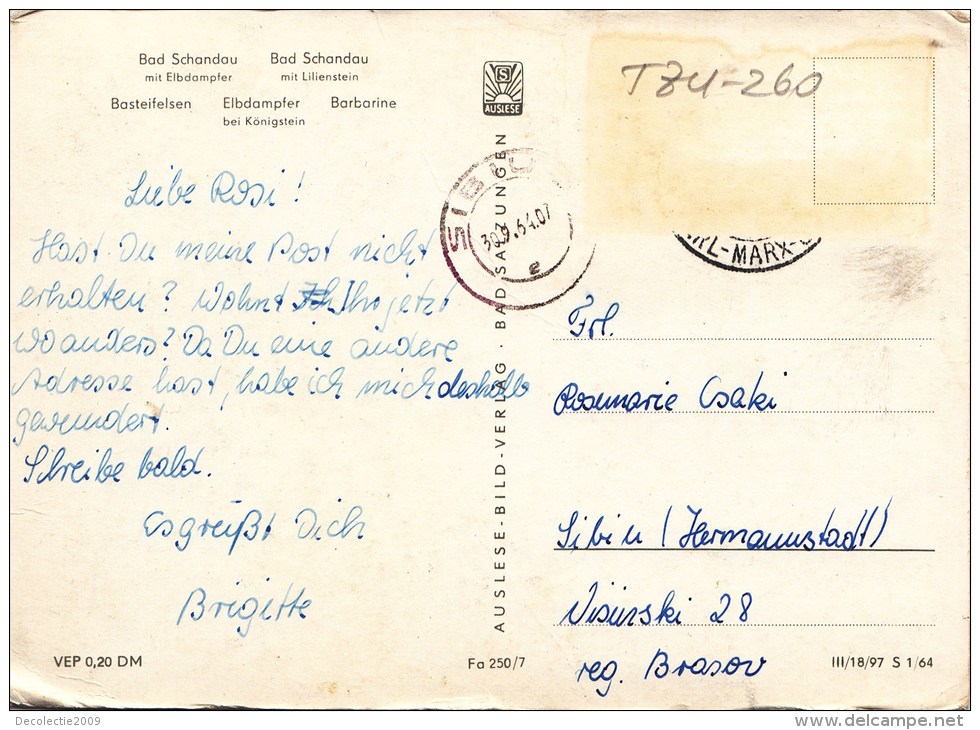 Bad Schandau Bad Schandau
mit Elbdampfer mit Lilienstein
Basteifelsen Elbdampfer Barbarine
bei Königstein
S
AUSLESE
TZU-260
SIBIU
64.07
e
RL-MARX-
Liebe Rosi!
Hast Du meine Post nicht
erhalten? Wohnt Ihr jetzt
woanders? Da Du eine andere
Adresse hast, habe ich mich deshalb
gewundert.
Schreibe bald.
Es grüßt Dich
Brigitte
AUSLESE-BILD-VERLAG · BAD SALZUNGEN
Frl.
Rosemarie Csaki
Sibiu (Hermannstadt)
28
reg. Brasov
VEP 0,20 DM
Fa 250/7
III/18/97 S 1/64
Decolectie2009
www.delcampe.net